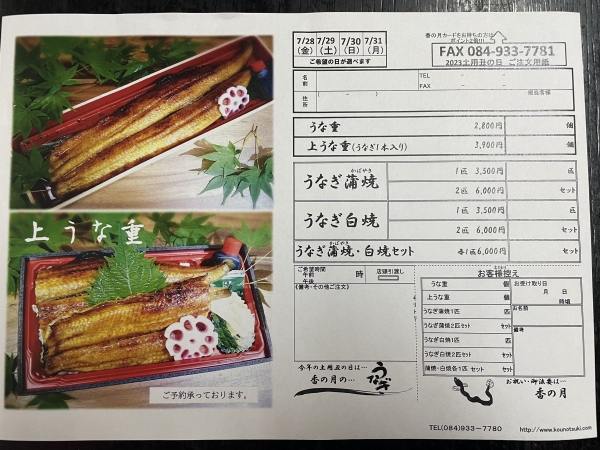 上うな重
ご予約承っております。
7/28(金)
7/29(土)
7/30(日)
7/31(月)
ご希望の日が選べます
香の月カードをお持ちの方は
ポイント2倍!!
FAX 084-933-7781
2023土用丑の日 ご注文用紙
名前
TEL － －
FAX － －
住所
( － )
担当者様
うな重 2,800円 個
上うな重(うなぎ1本入り) 3,900円 個
うなぎ蒲焼 かばやき
1匹 3,500円 匹
2匹 6,000円 セット
うなぎ白焼
1匹 3,500円 匹
2匹 6,000円 セット
うなぎ蒲焼・白焼セット かばやき 各1匹 6,000円 セット
ご希望時間
午前
午後
時
店頭引渡し
(備考・その他ご注文)
今年の土用丑の日は…
香の月の…
うなぎ
お客様控え
うな重 個
上うな重 個
うなぎ蒲焼1匹 匹
うなぎ蒲焼2匹セット セット
うなぎ白焼1匹 匹
うなぎ白焼2匹セット セット
蒲焼・白焼各1匹セット セット
お受け取り日
月 日
時頃
お名前
備考
お祝い・御法要は…
香の月
TEL(084)933-7780
http://www.kounotsuki.com/